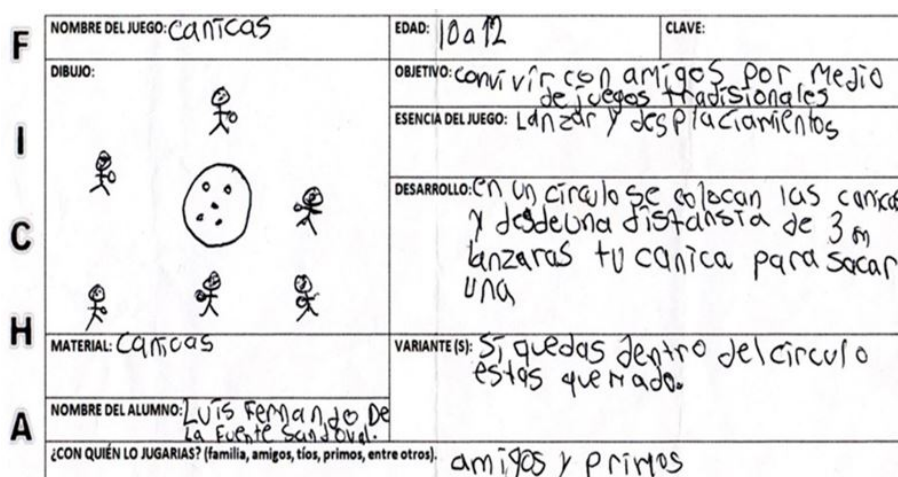 FICHA
NOMBRE DEL JUEGO: canicas
EDAD: 10 a 12
CLAVE:
DIBUJO:
OBJETIVO: convivir con amigos por medio
de juegos tradisionales
ESENCIA DEL JUEGO: Lanzar y desplaciamientos
DESARROLLO: en un circulo se colocan las canicas
y desde una distansia de 3 m
lanzaras tu canica para sacar
una
MATERIAL: canicas
VARIANTE (S): Si quedas dentro del circulo
estas quemado.
NOMBRE DEL ALUMNO: Luis Fernando De
La Fuente Sandoval.
¿CON QUIÉN LO JUGARIAS? (familia, amigos, tíos, primos, entre otros). amigos y primos